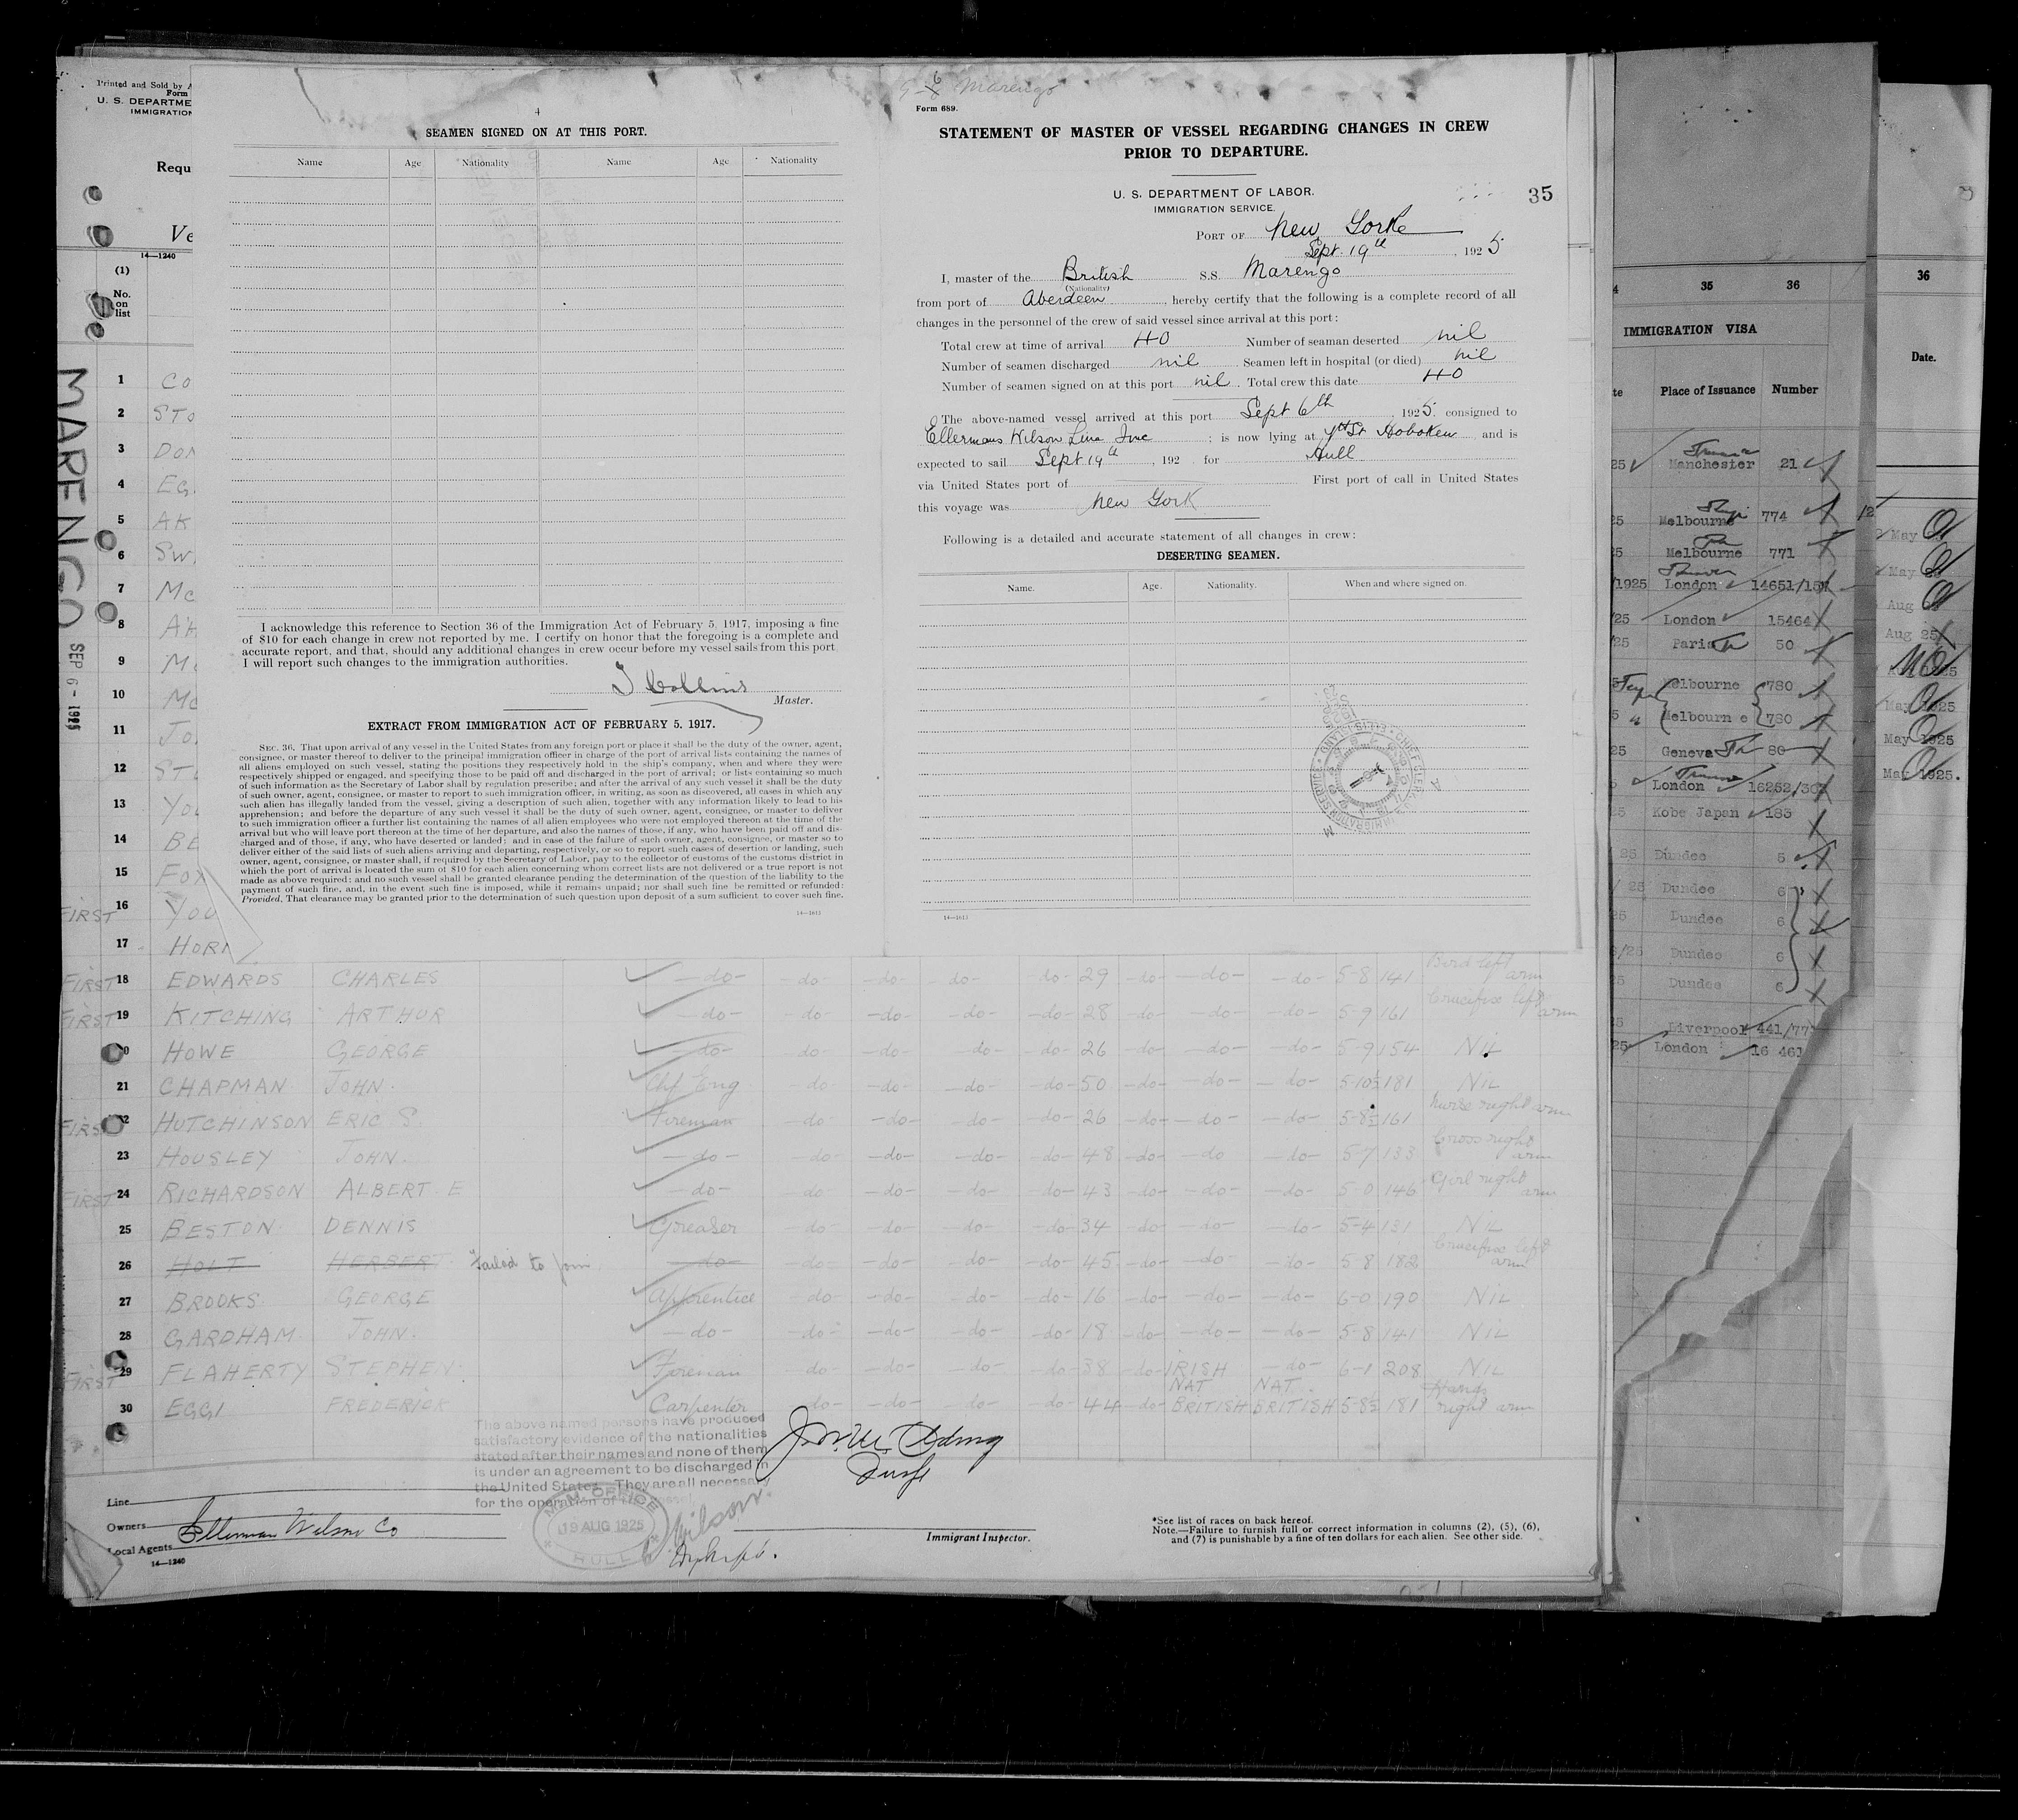 Printed and Sold by A
Form
U. S. DEPARTME
IMMIGRATION
Requ
Ve
14—1240
(1)
No.
on
list
MARENGO SEP 6 - 1925
1 CO
2 STO
3 DON
4 EG
5 AK
6 SW
7 MC
8 AH
9 M
10 MC
11 JO
12 ST
13 YOU
14 BE
15 FOX
FIRST 16 YOU
17 HORN
SEAMEN SIGNED ON AT THIS PORT.
Name Age Nationality Name Age Nationality
I acknowledge this reference to Section 36 of the Immigration Act of February 5, 1917, imposing a fine
of $10 for each change in crew not reported by me. I certify on honor that the foregoing is a complete and
accurate report, and that, should any additional changes in crew occur before my vessel sails from this port,
I will report such changes to the immigration authorities.
Collins
Master.
EXTRACT FROM IMMIGRATION ACT OF FEBRUARY 5, 1917.
SEC. 36. That upon arrival of any vessel in the United States from any foreign port or place it shall be the duty of the owner, agent,
consignee, or master thereof to deliver to the principal immigration officer in charge of the port of arrival lists containing the names of
all aliens employed on such vessel, stating the positions they respectively hold in the ship's company, when and where they were
respectively shipped or engaged, and specifying those to be paid off and discharged in the port of arrival; or lists containing so much
of such information as the Secretary of Labor shall by regulation prescribe; and after the arrival of any such vessel it shall be the duty
of such owner, agent, consignee, or master to report to such immigration officer, in writing, as soon as discovered, all cases in which any
such alien has illegally landed from the vessel, giving a description of such alien, together with any information likely to lead to his
apprehension; and before the departure of any such vessel it shall be the duty of such owner, agent, consignee, or master to deliver
to such immigration officer a further list containing the names of all alien employees who were not employed thereon at the time of the
arrival but who will leave port thereon at the time of her departure, and also the names of those, if any, who have been paid off and dis-
charged and of those, if any, who have deserted or landed; and in case of the failure of such owner, agent, consignee, or master so to
deliver either of the said lists of such aliens arriving and departing, respectively, or so to report such cases of desertion or landing, such
owner, agent, consignee, or master shall, if required by the Secretary of Labor, pay to the collector of customs of the customs district in
which the port of arrival is located the sum of $10 for each alien concerning whom correct lists are not delivered or a true report is not
made as above required; and no such vessel shall be granted clearance pending the determination of the question of the liability to the
payment of such fine, and, in the event such fine is imposed, while it remains unpaid; nor shall such fine be remitted or refunded:
Provided, That clearance may be granted prior to the determination of such question upon deposit of a sum sufficient to cover such fine.
14—1613
Marengo
Form 689.
STATEMENT OF MASTER OF VESSEL REGARDING CHANGES IN CREW
PRIOR TO DEPARTURE.
U. S. DEPARTMENT OF LABOR.
IMMIGRATION SERVICE.
35
PORT OF New York
Sept. 19th, 1925
I, master of the British S.S. Marengo
(Nationality)
from port of Aberdeen, hereby certify that the following is a complete record of all
changes in the personnel of the crew of said vessel since arrival at this port:
Total crew at time of arrival 40 Number of seaman deserted nil
Number of seamen discharged nil Seamen left in hospital (or died) nil
Number of seamen signed on at this port nil. Total crew this date 40
The above-named vessel arrived at this port Sept 6th, 1925. consigned to
Ellermans Wilson Line Inc; is now lying at 7th St Hoboken, and is
expected to sail Sept 19th, 192 for Hull
via United States port of First port of call in United States
this voyage was New York
Following is a detailed and accurate statement of all changes in crew:
DESERTING SEAMEN.
Name. Age. Nationality. When and where signed on.
14—1613
FIRST 18 EDWARDS CHARLES -do- do -do- -do- -do- 29 -do- -do- -do- 5-8 141 Bird left arm
FIRST 19 KITCHING ARTHUR -do- -do- -do- -do- -do- 28 -do- -do- -do- 5-9 161 Crucifix left arm
20 HOWE GEORGE -do- do- -do- -do- -do- 26 -do- -do- -do- 5-9 154 Nil
21 CHAPMAN JOHN. Chf Eng do -do- -do- -do- 50 -do- -do- -do- 5-10½ 181 NIL
FIRST 22 HUTCHINSON ERIC S. Fireman do -do- -do- -do- 26 -do- -do- -do- 5-8½ 161 Nurse right arm
23 HOUSLEY JOHN. -do- -do- -do- -do- -do- 48 -do- -do -do- 5-7 133 Cross right arm
FIRST 24 RICHARDSON ALBERT E -do- -do -do- -do- -do- 43 -do- -do- -do- 5-0 146 Girl right arm
25 BESTON DENNIS Greaser -do- -do- -do- -do- 34 -do- -do- -do- 5-4 131 NIL
26 HOLT HERBERT Failed to join -do- -do- -do- -do- -do- 45 -do- -do- -do- 5-8 182 Crucifix left arm
27 BROOKS GEORGE Apprentice -do- -do- -do- -do- 16 -do- -do- -do- 6-0 190 NIL
28 GARDHAM JOHN. -do- -do- -do- -do- -do- 18 -do- -do- -do- 5-8 141 NIL
FIRST 29 FLAHERTY STEPHEN Fireman do- -do- -do- -do- 38 -do- IRISH -do- 6-1 208 NIL
30 EGGI FREDERICK Carpenter -do- -do- -do- -do- 44 -do- NAT BRITISH NAT. BRITISH 5-8½ 181 Hands right arm
The above named persons have produced
satisfactory evidence of the nationalities
stated after their names and none of them
is under an agreement to be discharged in
the United States. They are all necessary
for the operation of
M.M. OFFICE
19 AUG 1925
HULL
Wilson.
Line
Owners Ellerman Wilson Co
Local Agents
14—1240
Immigrant Inspector.
*See list of races on back hereof.
Note.—Failure to furnish full or correct information in columns (2), (5), (6),
and (7) is punishable by a fine of ten dollars for each alien. See other side.
35 36
IMMIGRATION VISA
Place of Issuance Number
25 Manchester 21
25 Melbourne 774
25 Melbourne 771
/1925 London 14651/15
/25 London 15464
/25 Paris 50
Melbourne 780
Melbourne 780
25 Geneva 80
London 16252/30
25 Kobe Japan 183
25 Dundee 5
/ 25 Dundee 6
25 Dundee 6
/25 Dundee 6
25 Dundee 6
25 Liverpool 441/77
25 London 16 461
36
Date.
May
May 25
Aug 25
Aug 25
1925
May 1925
May 1925
May 1925.